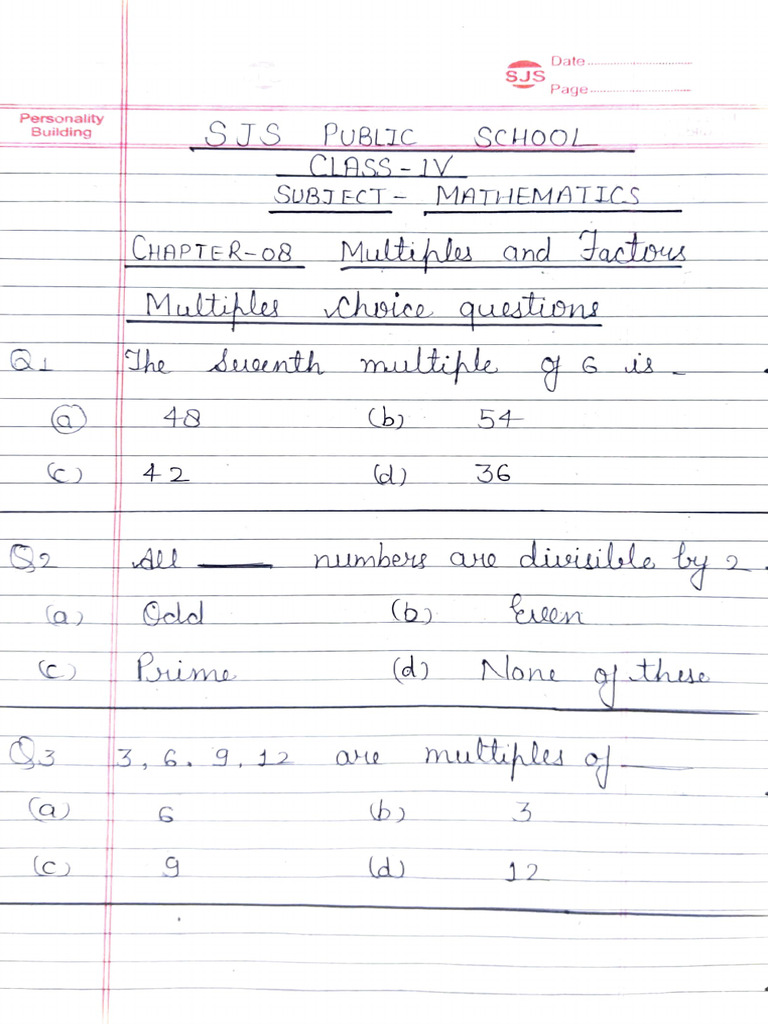 Date
SJS
Page
Personality
Building
SJS PUBLIC SCHOOL
CLASS-IV
SUBJECT- MATHEMATICS
CHAPTER-08 Multiples and Factors
Multiples Choice questions
Q1 The Seventh multiple of 6 is -
(a) 48 (b) 54
(c) 42 (d) 36
Q2 All ____ numbers are divisible by 2.
(a) Odd (b) Even
(c) Prime (d) None of these
Q3 3, 6. 9, 12 are multiples of ____
(a) 6 (b) 3
(c) 9 (d) 12